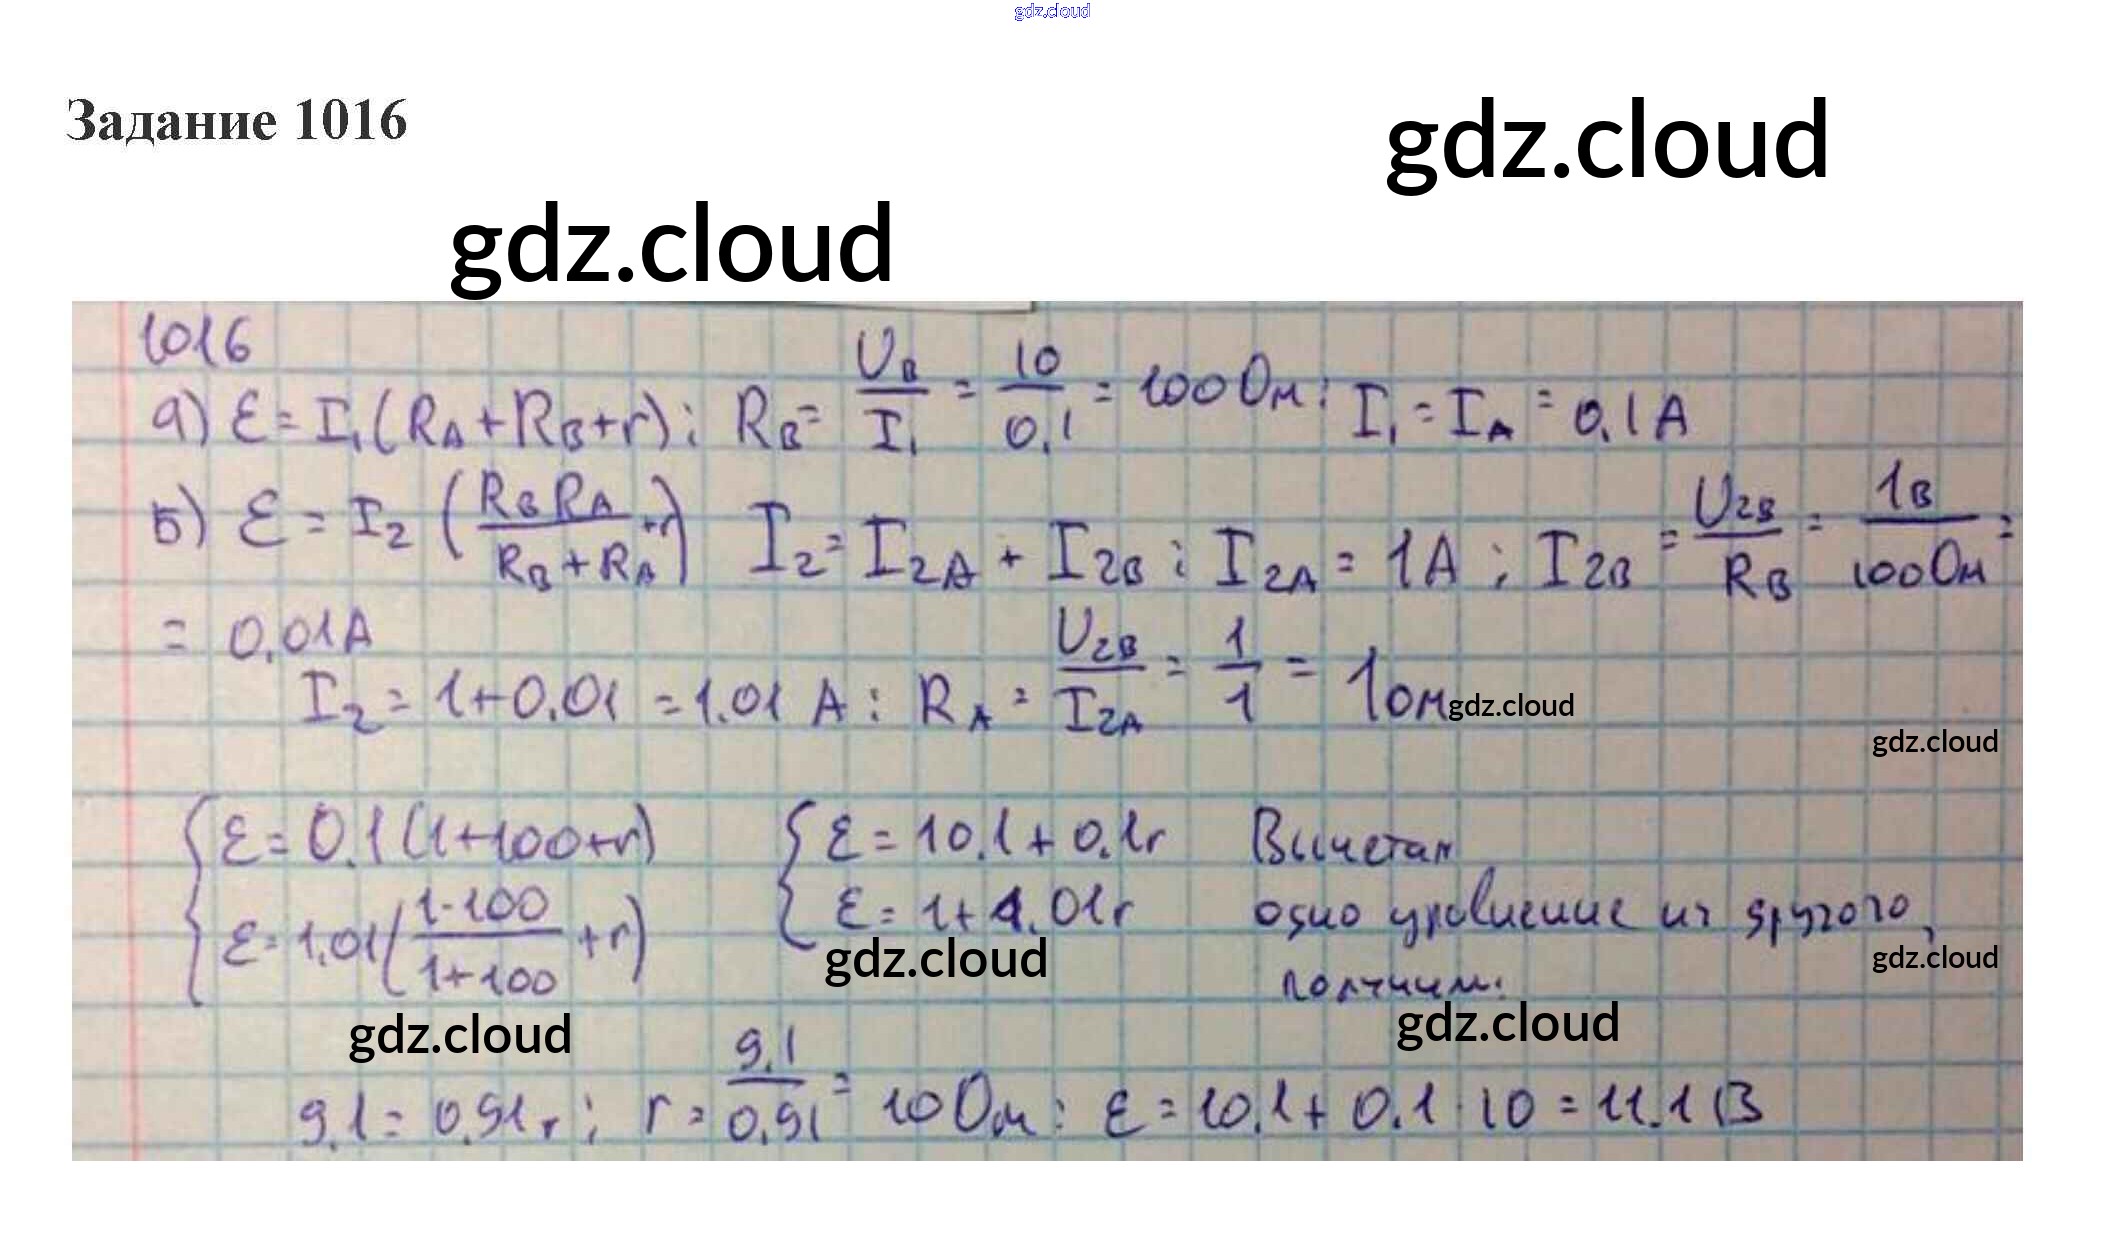 gdz.cloud
Задание 1016
gdz.cloud
gdz.cloud
1016
а) ℰ = I₁(R_A + R_B + r); R_B = U_B/I₁ = 10/0,1 = 100 Ом; I₁ = I_A = 0,1 А
Б) ℰ = I₂ (R_B R_A/(R_B + R_A) + r) I₂ = I_2A + I_2B; I_2A = 1А; I_2B = U_2B/R_B = 1В/100 Ом =
= 0,01А
I₂ = 1+0,01 = 1.01 А; R_A = U_2B/I_2A = 1/1 = 1 ом
gdz.cloud
gdz.cloud
{ ℰ = 0.1(1+100+r) { ℰ = 10.1 + 0.1r Вычетам
ℰ = 1.01(1·100/(1+100) + r) ℰ = 1+1.01r одно уравнение из другого,
получим:
gdz.cloud
gdz.cloud
gdz.cloud
gdz.cloud
9.1 = 0.91r; r = 9.1/0.91 = 10 Ом; ℰ = 10.1 + 0.1·10 = 11.1 В